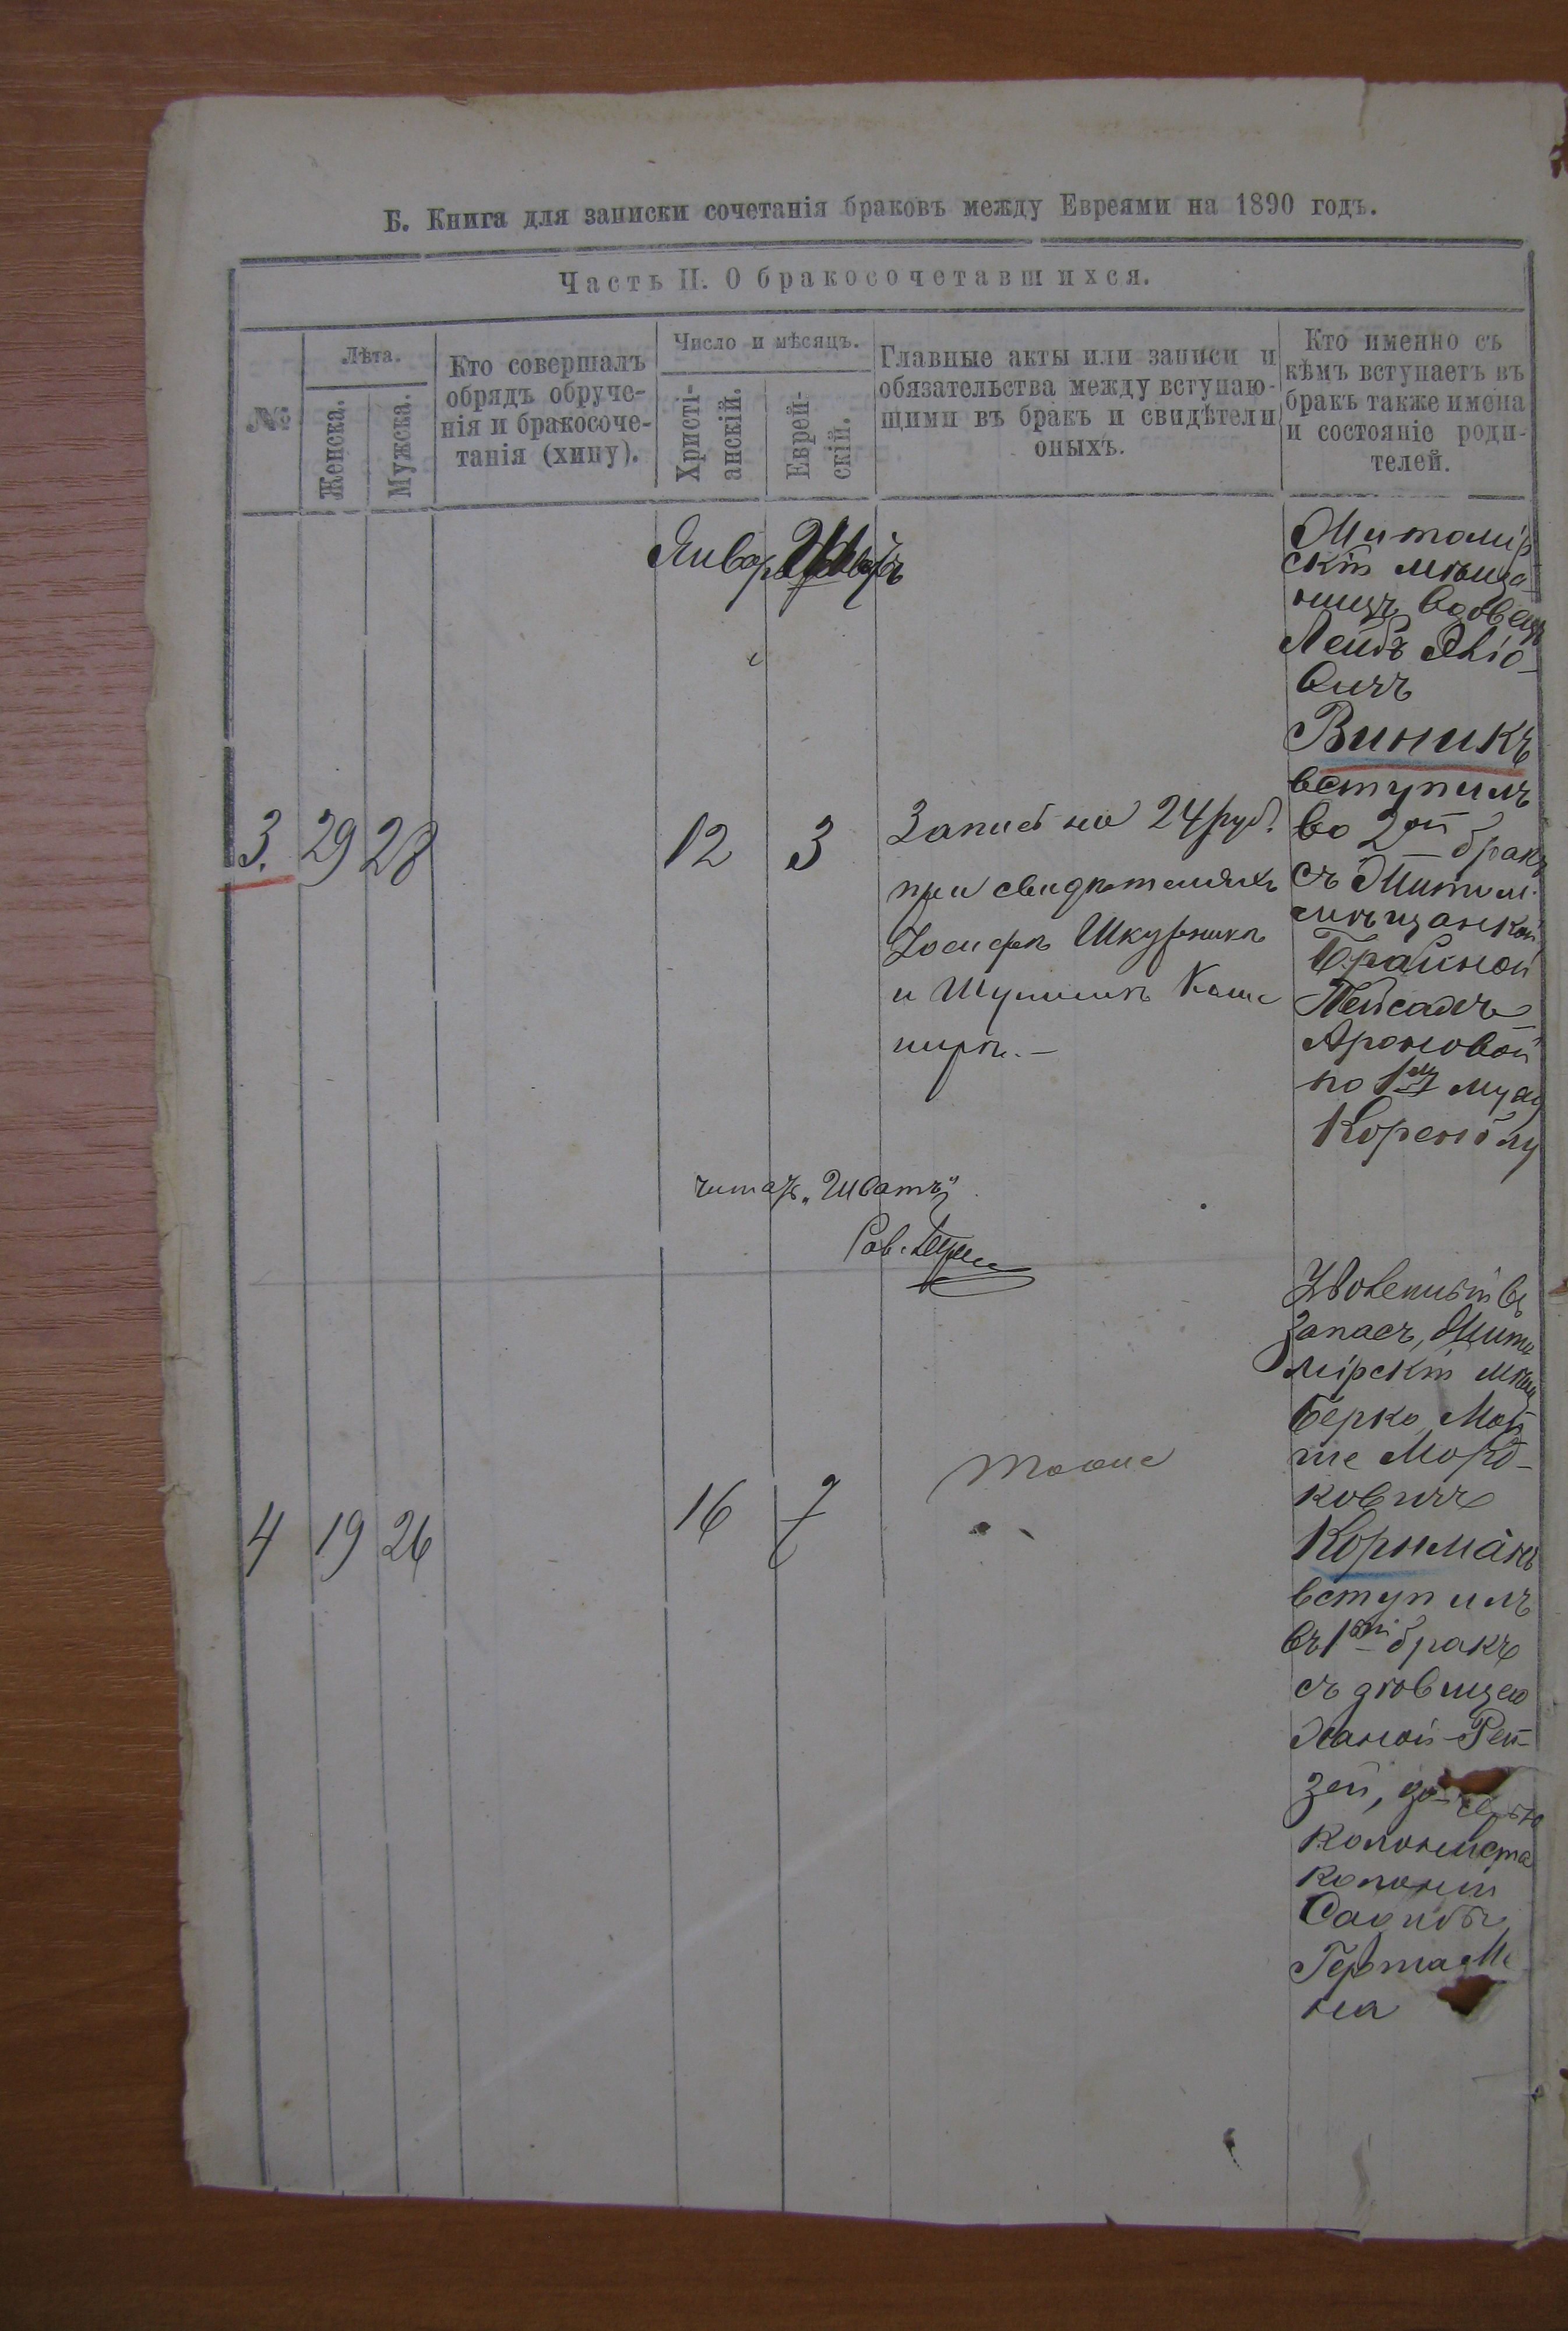 Б. Книга для записки сочетанія браковъ между Евреями на 1890 годъ.
Часть II. О бракосочетавшихся.
№
Лѣта.
Женска.
Мужска.
Кто совершалъ
обрядъ обруче-
нія и бракосоче-
танія (хипу).
Число и мѣсяцъ.
Христі-
анскій.
Еврей-
скій.
Главные акты или записи и
обязательства между вступаю-
щими въ бракъ и свидѣтели
оныхъ.
Кто именно съ
кѣмъ вступаетъ въ
бракъ также имена
и состояніе роди-
телей.
Январь
3. 29 28 12 3
Запись на 24 руб.
при свидѣтеляхъ
Іосифѣ Шкурникѣ
и Шулимѣ Каше
нирѣ.-
Житомір
скій мѣща-
нинъ вдовецъ
Лейбъ
вичъ
Виникъ
вступилъ
во 2ой бракъ
съ Житом.
мѣщанкой
Брайной
Пейсахъ
Ароновой
по 1му мужу
читать „Шватъ"
Рав.
4 19 26 16 7
тоже
Уволенный въ
запасъ, Жито
мірскій мѣщ
Берко Мой
ше Морд-
ковичъ
Корнманъ
вступилъ
въ 1ый бракъ
съ дѣвицею
Ханой-Рей-
зей, дочерью
колониста
колоніи